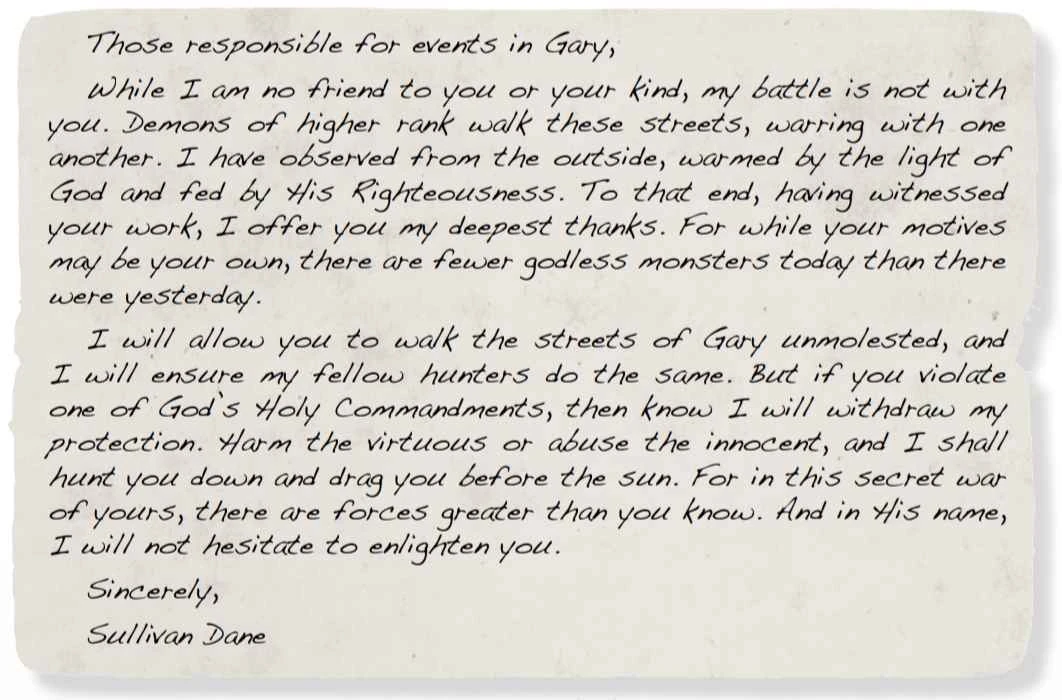 Those responsible for events in Gary,
While I am no friend to you or your kind, my battle is not with
you. Demons of higher rank walk these streets, warring with one
another. I have observed from the outside, warmed by the light of
God and fed by His Righteousness. To that end, having witnessed
your work, I offer you my deepest thanks. For while your motives
may be your own, there are fewer godless monsters today than there
were yesterday.
I will allow you to walk the streets of Gary unmolested, and
I will ensure my fellow hunters do the same. But if you violate
one of God's Holy Commandments, then know I will withdraw my
protection. Harm the virtuous or abuse the innocent, and I shall
hunt you down and drag you before the sun. For in this secret war
of yours, there are forces greater than you know. And in His name,
I will not hesitate to enlighten you.
Sincerely,
Sullivan Dane